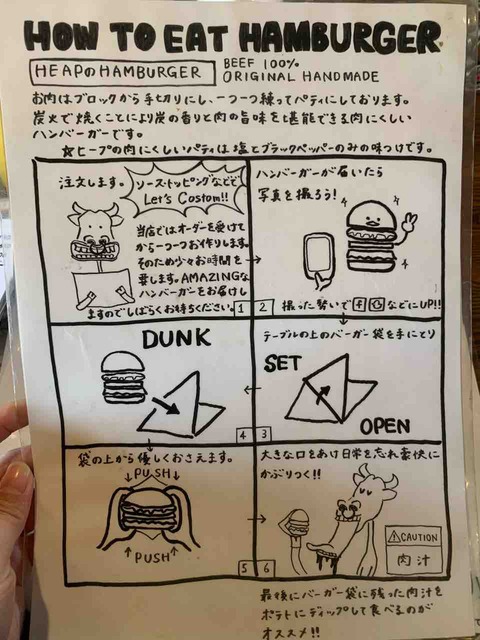 HOW TO EAT HAMBURGER
HEAPのHAMBURGER
BEEF 100%
ORIGINAL HANDMADE
お肉はブロックから手切りにし、一つ一つ練ってパティにしております。
炭火で焼くことにより炭の香りと肉の旨味を堪能できる肉にくしい
ハンバーガーです。
☆ヒープの肉にくしいパティは塩とブラックペッパーのみの味つけです。
注文します。
ソース・トッピングなどで
Let's Costom!!
当店ではオーダーを受けて
から一つ一つお作りします。
そのため少々お時間を
要します。AMAZINGな
ハンバーガーをお届けし
ますのでしばらくお待ちください。
1
ハンバーガーが届いたら
写真を撮ろう!
2
撮った勢いで f などにUP!!
テーブルの上のバーガー袋を手にとり
SET
OPEN
3
DUNK
4
袋の上から優しくおさえます。
↓PUSH↓
↑PUSH↑
5
大きな口をあけ日常を忘れ豪快に
かぶりつく!!
⚠CAUTION
肉汁
6
最後にバーガー袋に残った肉汁を
ポテトにディップして食べるのが
オススメ!!